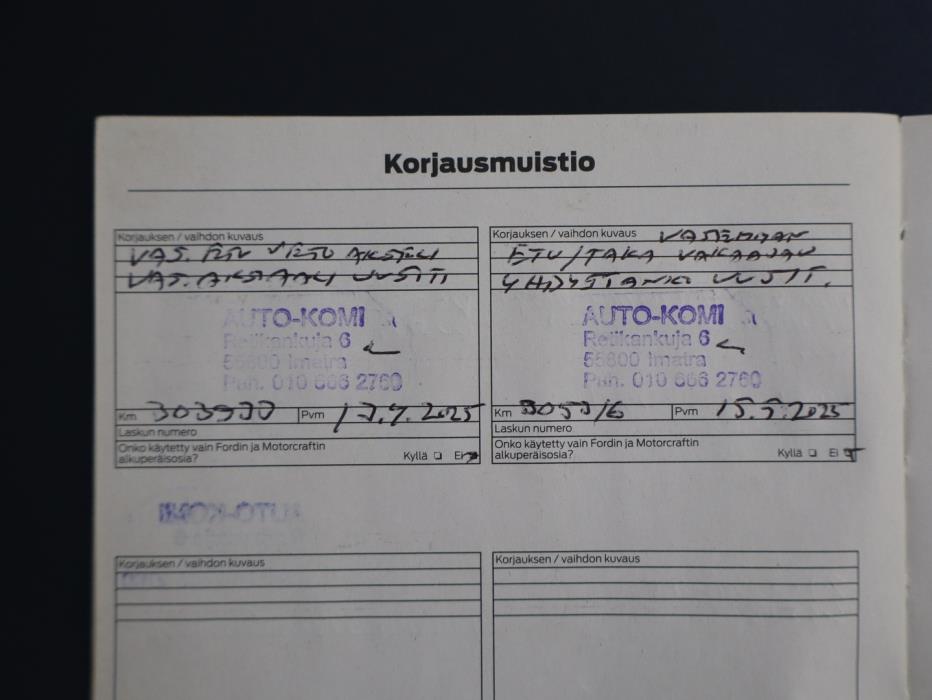 Korjausmuistio
Korjauksen / vaihdon kuvaus
VAS. ETU VETO AKSELI
VAS. UUSITTI
AUTO-KOMI
Retikankuja 6
55800 Imatra
Puh. 010 666 2760
Km Pvm 17.4.2025
Laskun numero
Onko käytetty vain Fordin ja Motorcraftin
alkuperäisosia? Kyllä Ei
Korjauksen / vaihdon kuvaus VASEMMAN
ETU/TAKA VAKAAJAN
YHDYSTANKO UUSITT.
AUTO-KOMI
Retikankuja 6
55800 Imatra
Puh. 010 666 2760
Km Pvm 15.5.2025
Laskun numero
Onko käytetty vain Fordin ja Motorcraftin
alkuperäisosia? Kyllä Ei
AUTO-KOMI
Korjauksen / vaihdon kuvaus
Korjauksen / vaihdon kuvaus